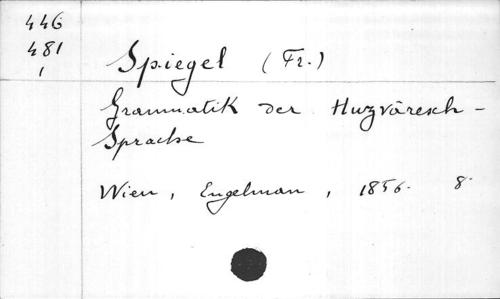 446
481
1
Spiegel (Fr.)
Grammatik der Huzvâresch-
Sprache
Wien, Engelman, 1856. 8.